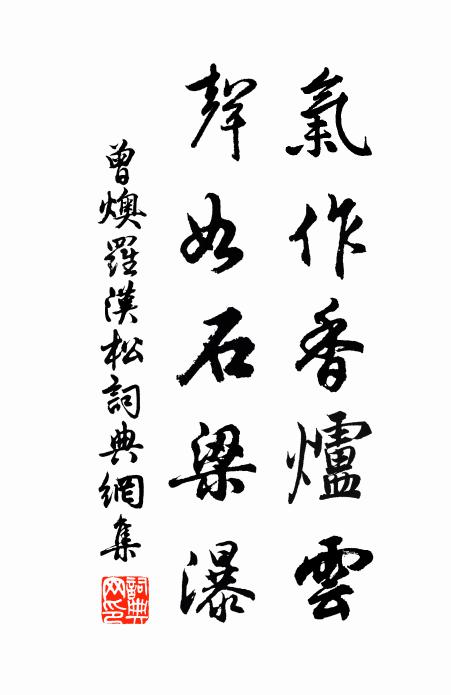 氣作香爐雲
聲如石梁瀑
曾燠羅漢松詞典網集
詞典
网印